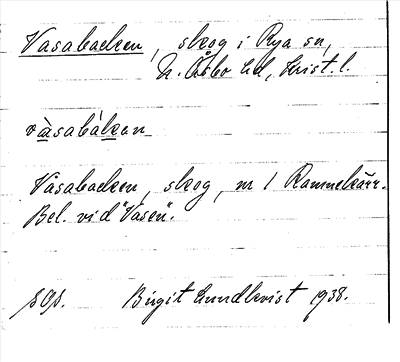 Vasabacken, skog i Rya sn,
N. Åsbo hd, Krist. l.
vàsabákan
Vasabacken, skog, nr 1 Rammekärr.
Bel. vid "Vasen".
Birgit Lundkvist 1938.